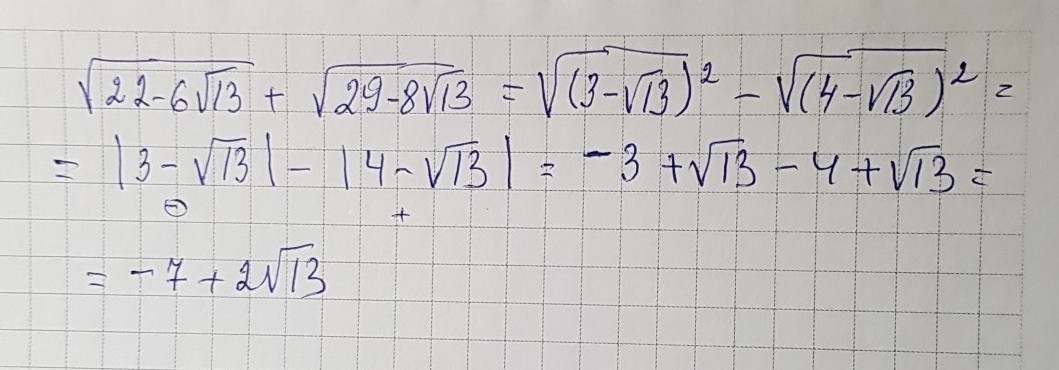 √(22-6√13) + √(29-8√13) = √(3-√13)² - √(4-√13)² =
= |3-√13| - |4-√13| = -3+√13-4+√13 =
⊖ +
= -7+2√13